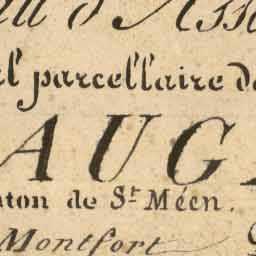 d'Ass
parcellaire de
AUG
nton de St. Méen.
Montfort